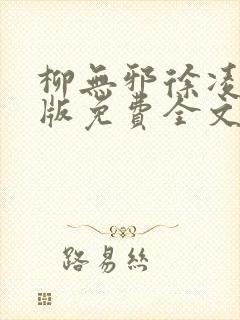 柳無邪徐凌
版免費全文
路易絲